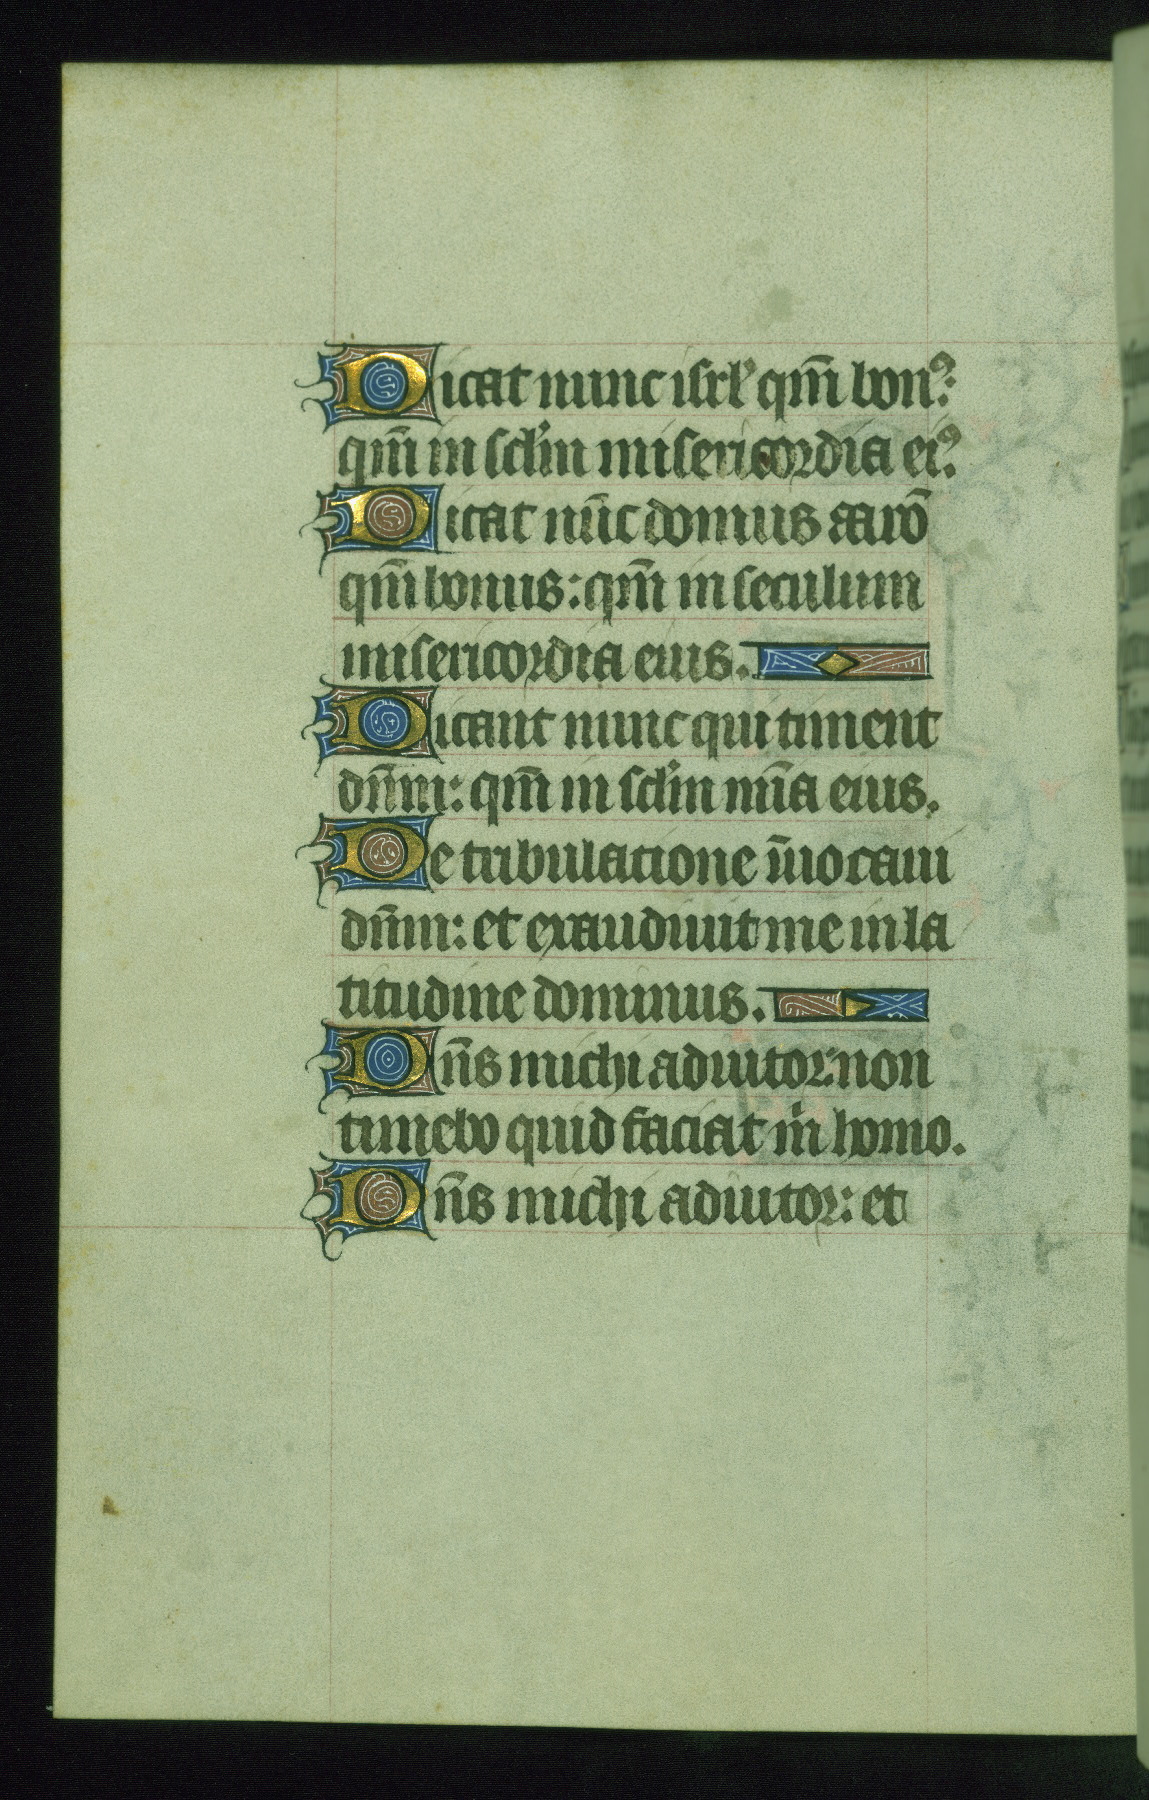 Dicat nunc isrl' qm̄ bonꝰ:
qm̄ in scl'm misericordia eiꝰ.
Dicat nūc domus aarō
qm̄ bonus: qm̄ in seculum
misericordia eius.
Dicant nunc qui timent
dn̄m: qm̄ in scl'm mīa eius.
De tribulatione īuocaui
dn̄m: et exaudiuit me in la
titudine dominus.
Dn̄s michi adiutor: non
timebo quid faciat m̍ homo.
Dn̄s michi adiutor: et